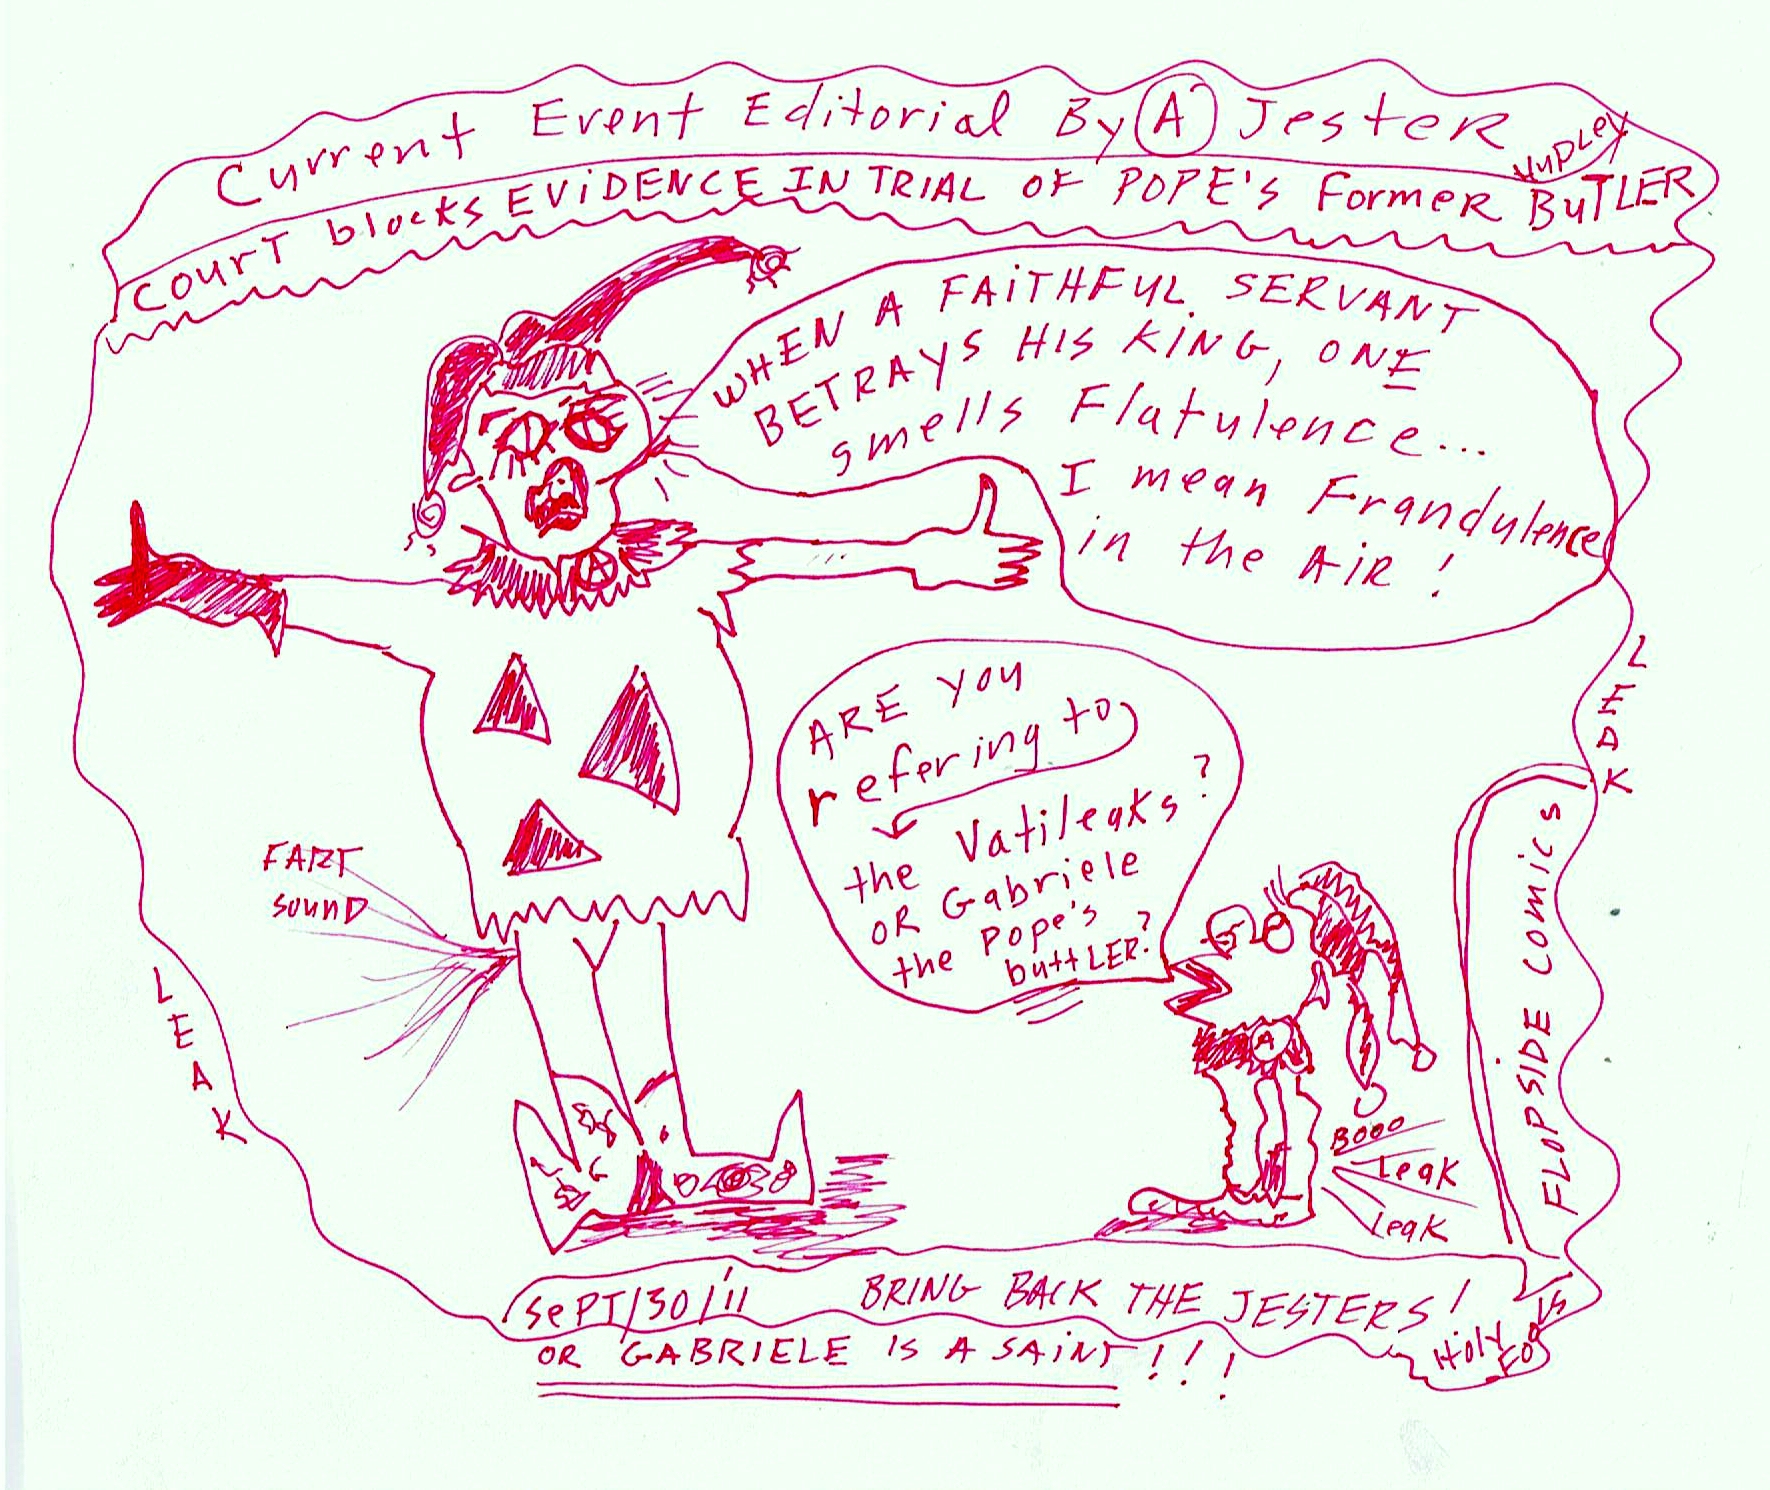 Current Event Editorial By A JesteR
HUDLEY
COURT blocks EVIDENCE IN TRIAL OF POPE's FormeR BuTLER
WHEN A FAITHFUL SERVANT
BETRAYS HIS KING, ONE
smells Flatulence...
I mean Fraudulence
in the AiR!
A
ARE you
refering to
the Vatileaks?
OR Gabriele
the Pope's
buttLER?
FART
SOUND
LEAK
LEAK
A
BOOO
Leak
Leak
FLOPSIDE COMICS
SePT/30/'11 BRING BACK THE JESTERS!
OR GABRIELE IS A SAINT!!!